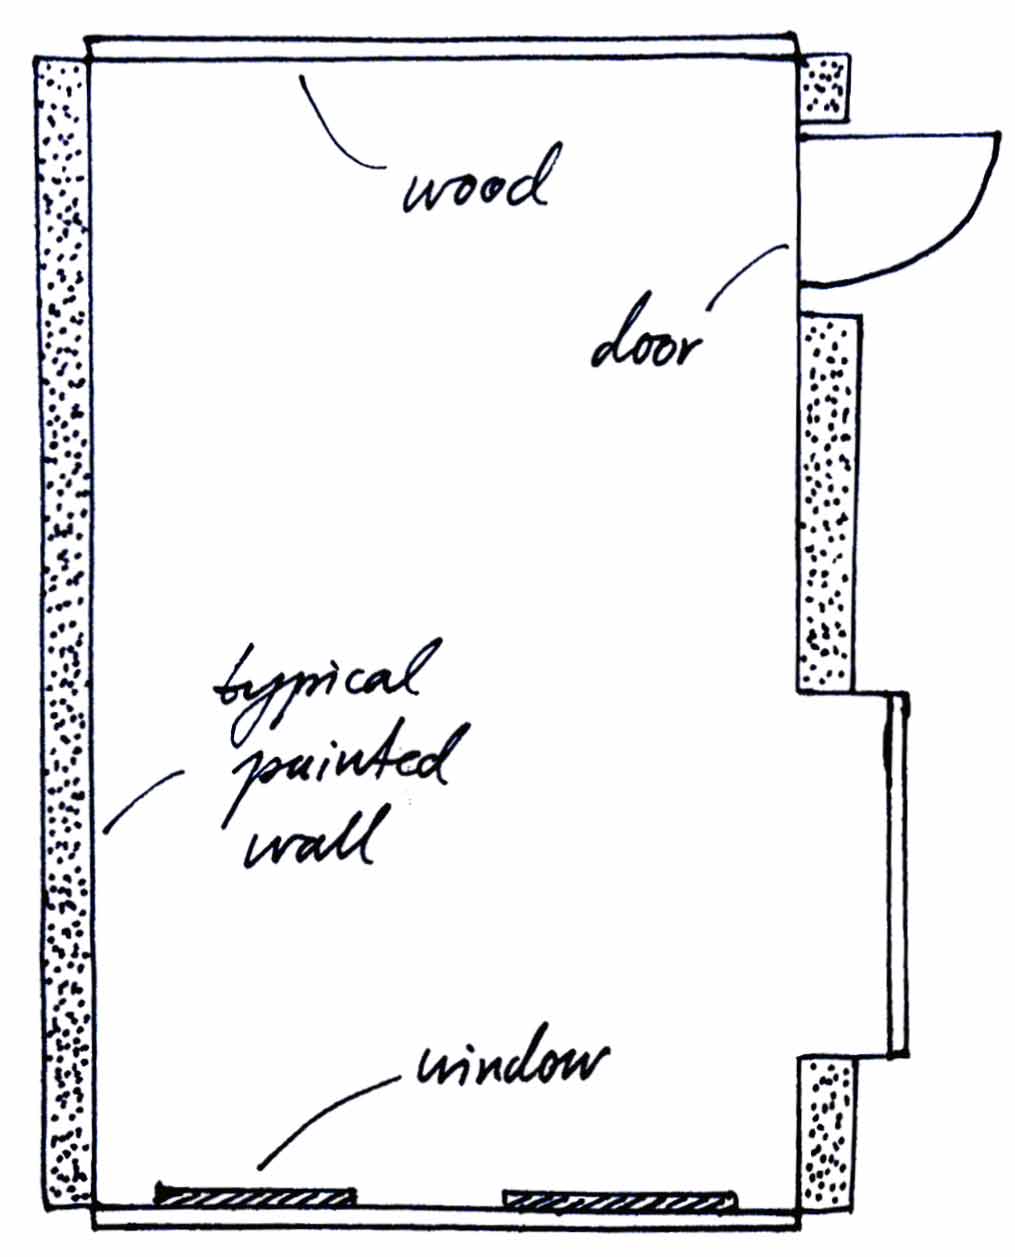 wood
door
typical
painted
wall
window